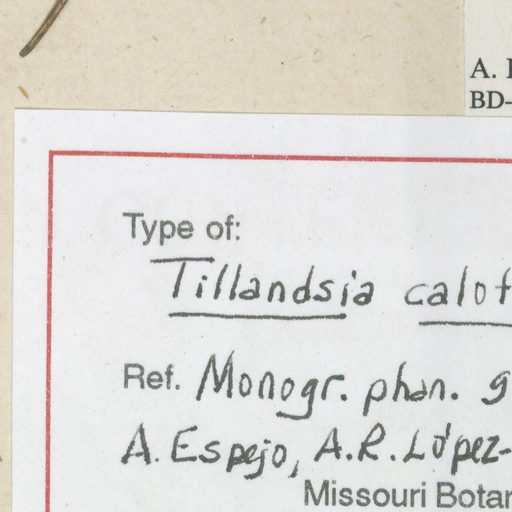 A.
BD-
Type of:
Tillandsia calot
Ref. Monogr. phan. 9
A. Espejo, A.R. López-
Missouri Botan